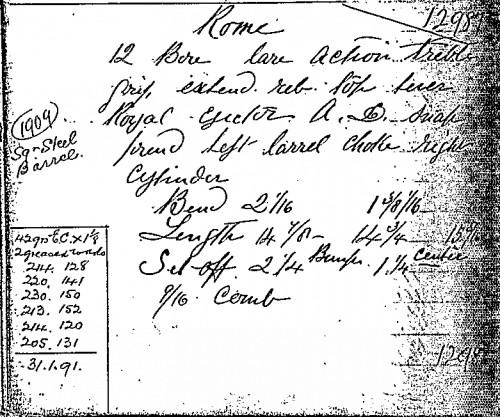 Rome
1298
12 Bore bare action treble
grip, extend. reb. top lever
Royal ejector A. & D. snap
forend left barrel choke right
Cylinder
Bend 2 1/16
Length 14 7/8 - 14 3/4
Set off. 2 1/4 Bump. 1 1/4 Centre
9/16 comb
1909
Sqn Steel
Barrels
42 grs E.C. x 1 1/8
2 greased wads
214. 128
220. 141
230. 150
213. 152
214. 120
205. 131
31.1.91.
1298